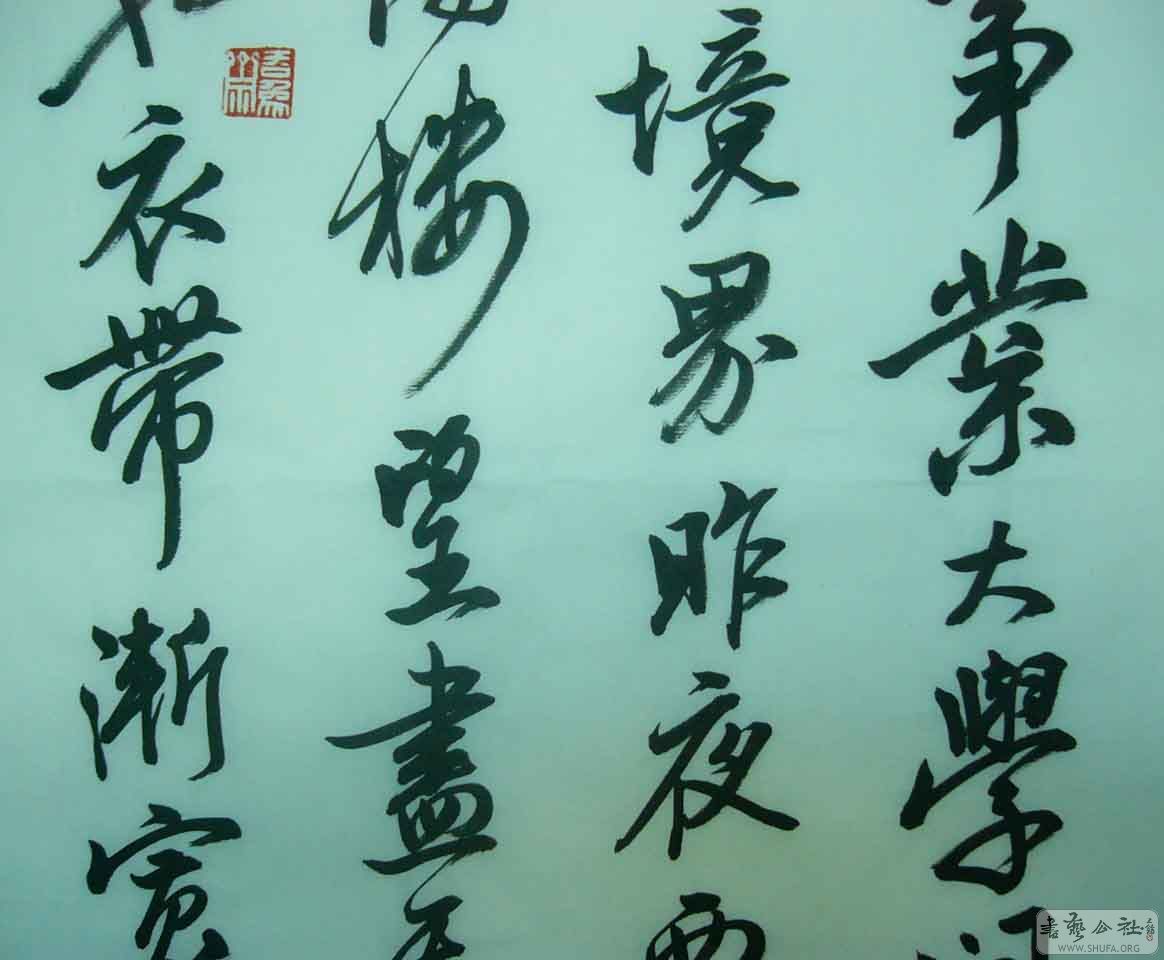 事業大學問
境界昨夜西
樓望盡天
衣帶漸寬
書藝公社
WWW.SHUFA.ORG